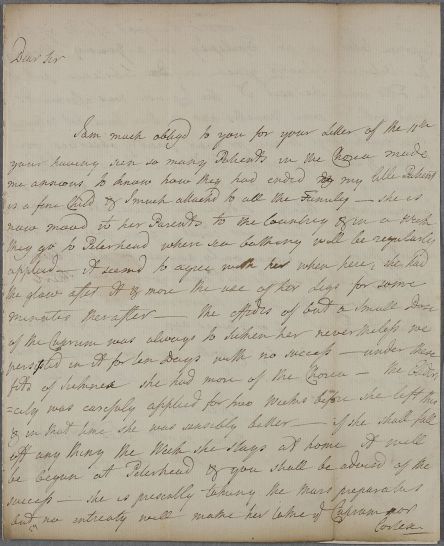 Dear Sir
I am much oblig'd to you for your Letter of the 11th
your having seen so many Patients in the Chorea made
me anxious to know how they had ended my litle Patient
is a fine Child & much attach'd to all the Family — she is
now moved to her Parents to the Country & in a week
they go to Peterhead where sea bathing will be regularly
applied — it seem'd to agree with her when here; she had
the glow after it & more the use of her Legs for some
minutes therafter — the effects of but a small Dose
of the Cuprum was always to sicken her nevertheless we
persisted in it for ten Days with no success — under these
fits of Sickness she had more of the Chorea — the Electri
=city was carefuly applied for two weeks before she left this
& in that time she was sensibly better — if she shall fall
off any thing the Week she stays at home it will
be begun at Peterhead & you shall be advised of the
success — she is presently taking the mars preparatus
but no intreaty will make her take the Cuprum nor
Cortex —